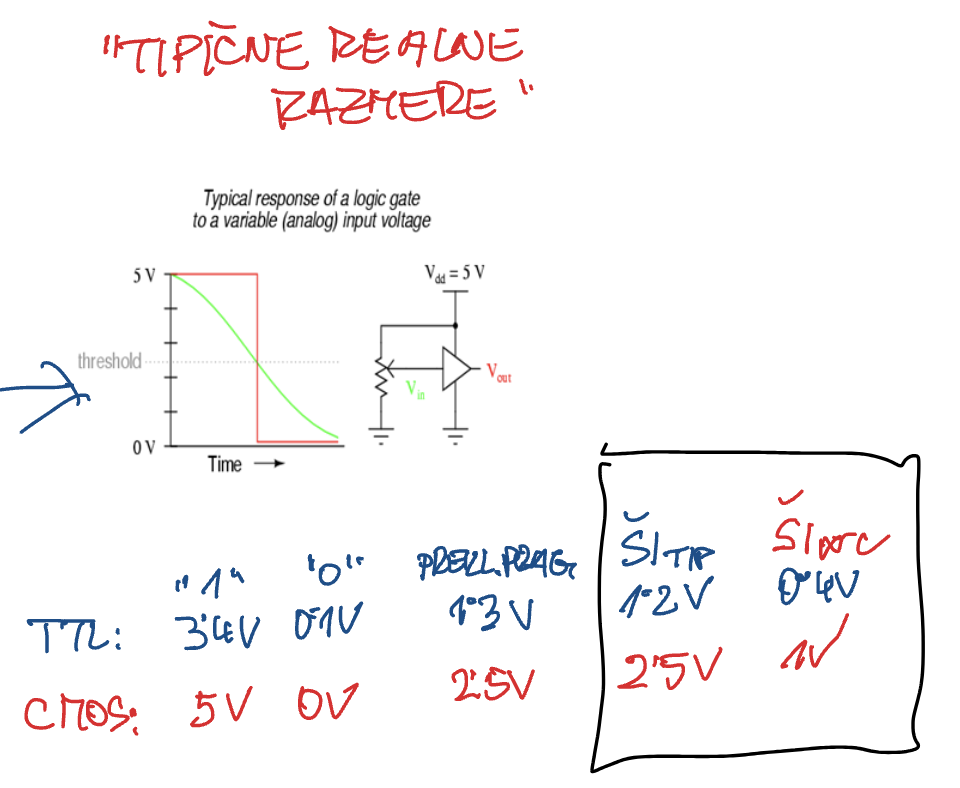 "TIPIČNE REALNE
RAZMERE"
Typical response of a logic gate
to a variable (analog) input voltage
5 V
threshold
0 V
Time
Vdd = 5 V
Vin
Vout
"1" "0" PREKL. PRAG ŠITIP ŠIWC
TTL: 3.4V 0.1V 1.3V 1.2V 0.4V
CMOS: 5V 0V 2.5V 2.5V 1V